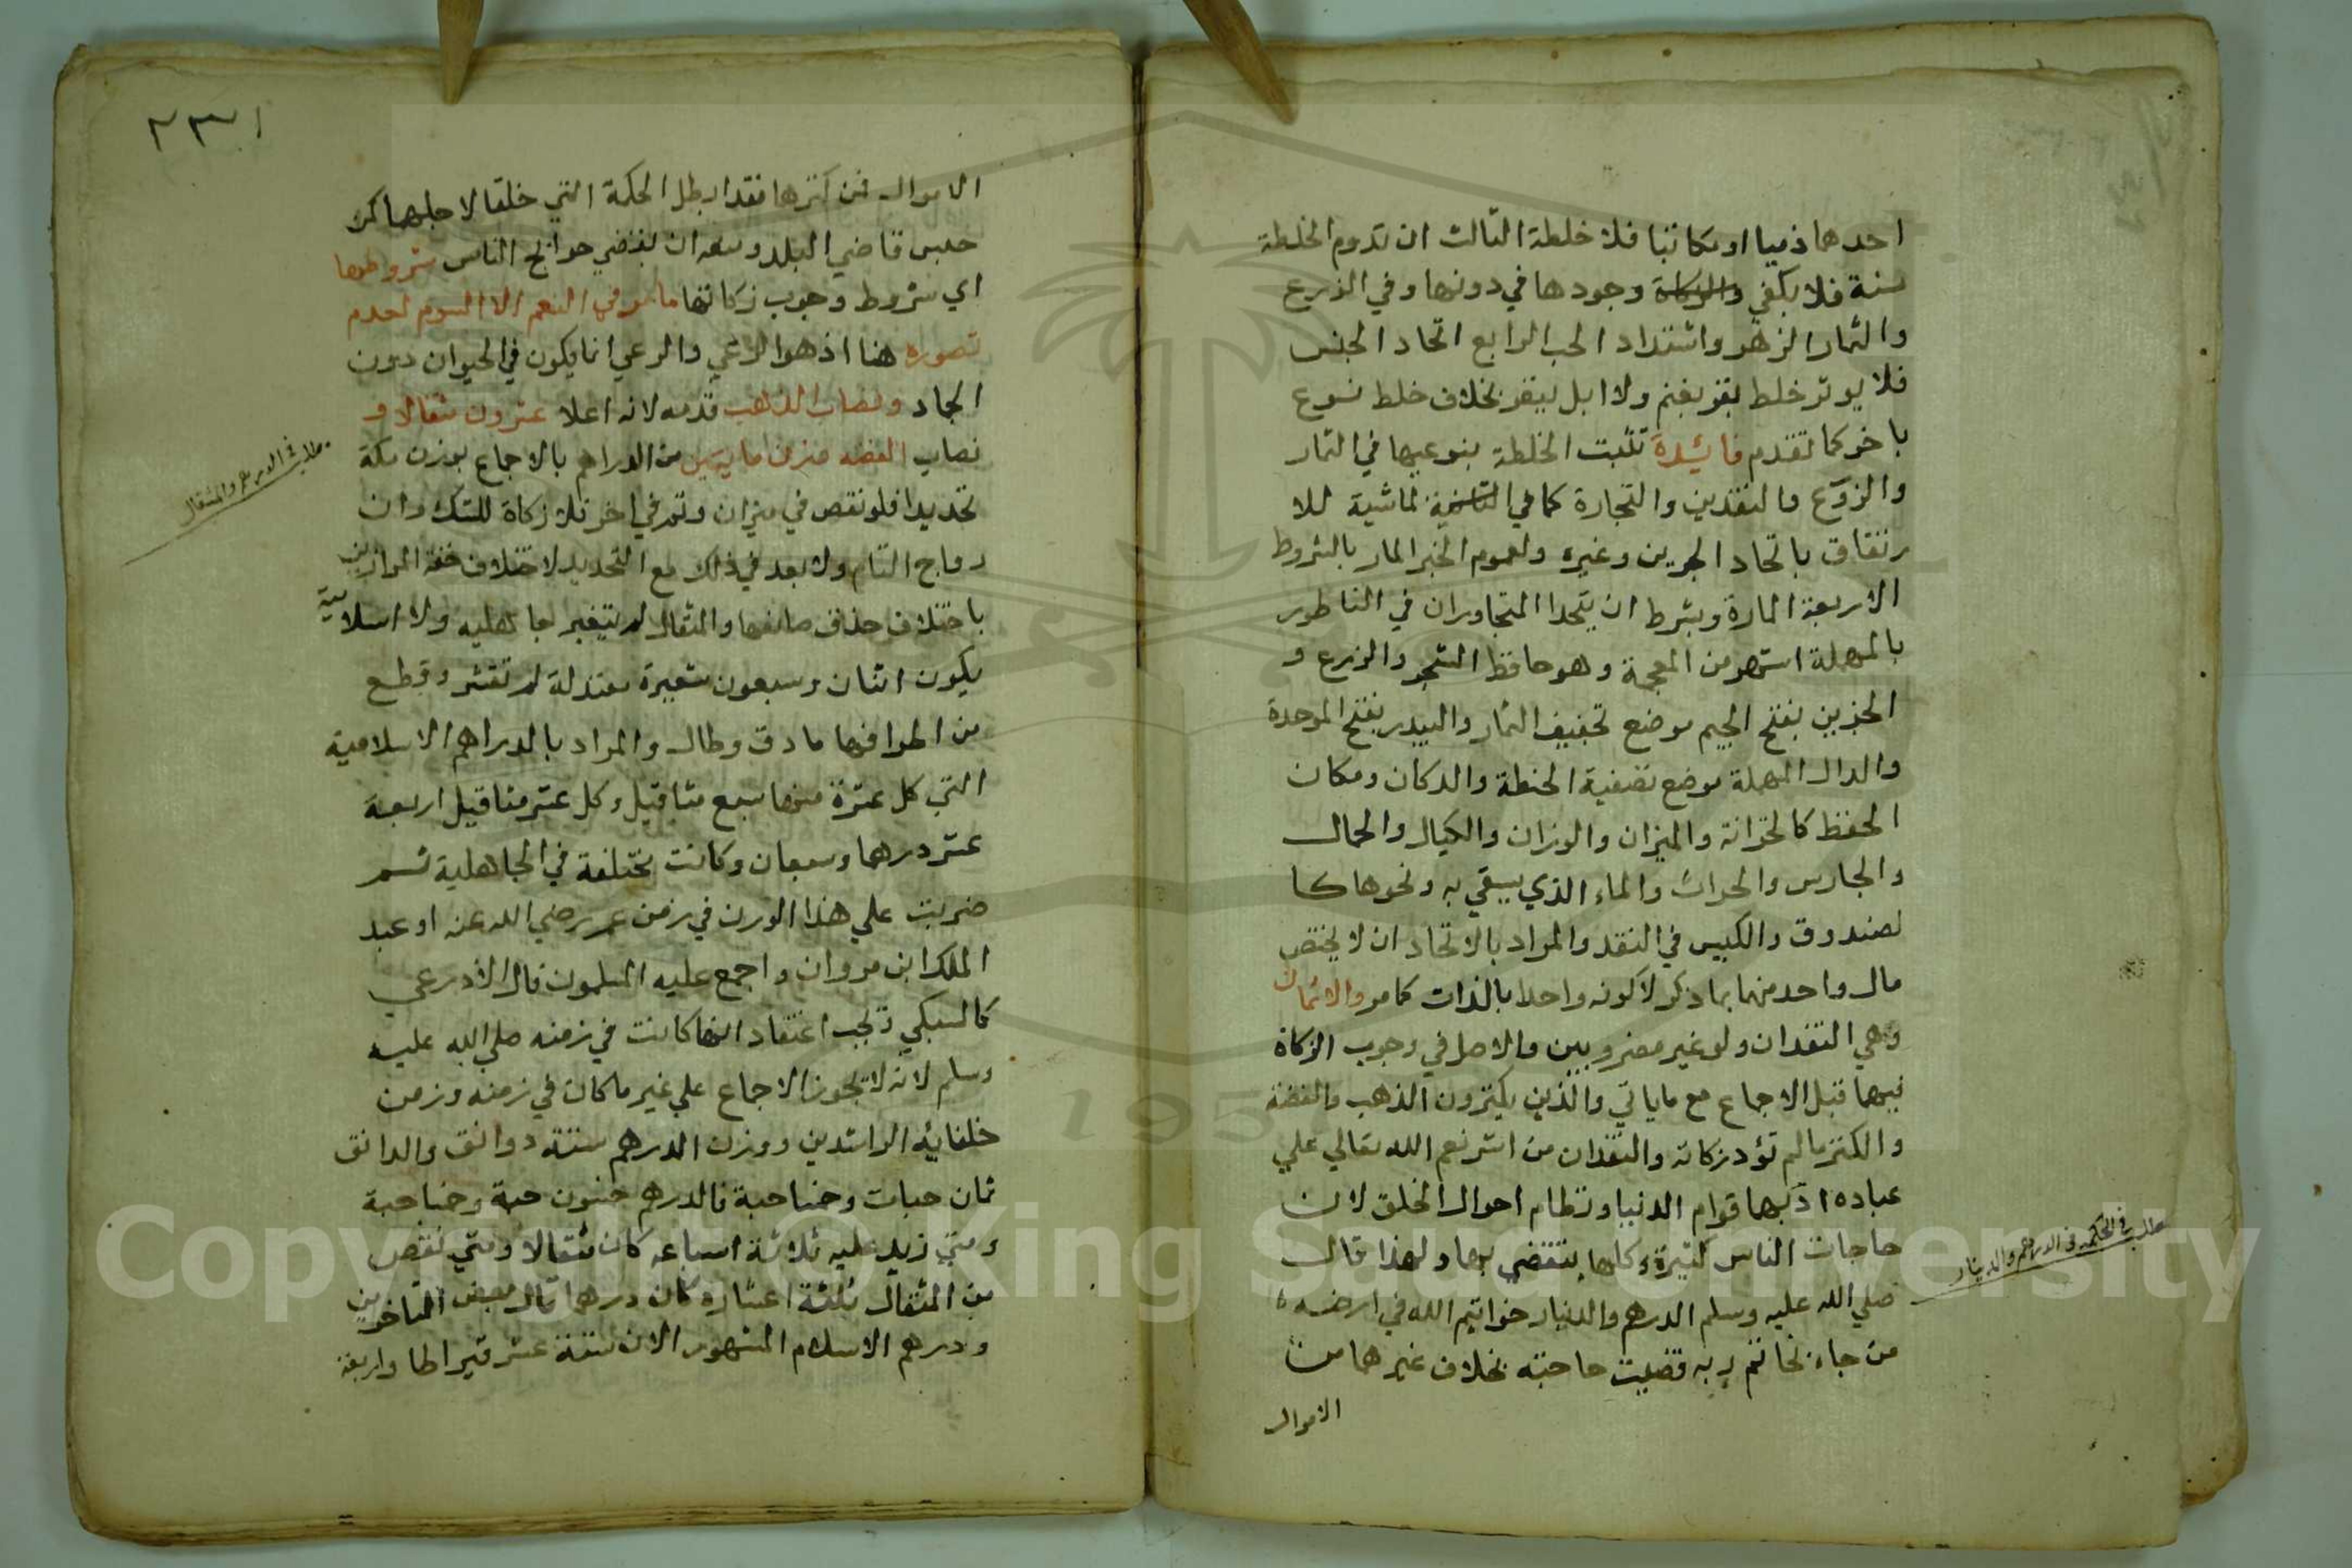 احدهما ذميا او مكاتبا فلا خلطة الثالث ان تدوم الخلطة
سنة فلا يكفي وجودها في دونها وفي الزرع
والثمار الزهو واشتداد الحب الرابع اتحاد الجنس
فلا يوثر خلط بقر بغنم ولا ابل ببقر بخلاف خلط نوع
باخر كما تقدم فائدة تثبت الخلطة بنوعيها في الثمار
والزرع والنقدين والتجارة كما في الماشية للا
رتفاق باتحاد الجرين وغيره ولعموم الخبر المار بالشروط
الاربعة المارة وبشرط ان يتحدا المتجاوران في الناطور
بالمهملة اشهر من المعجمة وهو حافظ الشجر والزرع و
الجرين بفتح الجيم موضع تجفيف الثمار والبيدر بفتح الموحدة
والدال المهملة موضع تصفية الحنطة والدكان ومكان
الحفظ كالخزانة والميزان والوزان والكيال والحمال
والحارس والحراث والماء الذي يسقي به ونحوها كا
لصندوق والكيس في النقد والمراد بالاتحاد ان لا يختص
مال واحد منهما بما ذكر لا كونه واحدا بالذات كما مر والاثمان
وهي النقدان ولو غير مضروبين والاصل في وجوب الزكاة
فيهما قبل الاجماع مع ما ياتي والذين يكنزون الذهب والفضة
والكنز مالم تؤد زكاته والنقدان من اشرف نعم الله تعالي علي
عباده اذ بهما قوام الدنيا ونظام احوال الخلق لان
حاجات الناس كثيرة وكلها تنقضي بهما ولهذا قال
صلي الله عليه وسلم الدرهم والدينار خواتيم الله في ارضه
من جاء بخاتم ربه قضيت حاجته بخلاف غيرهما من
الاموال
مطلب في الحكمة في الدرهم والدينار
٢٣١
الاموال فمن كنزها فقد ابطل الحكمة التي خلقا لاجلها كمن
حبس قاضي البلد ومنعه ان يقضي حوائج الناس شروطها
اي شروط وجوب زكاتها ما مر في النعم الا السوم لعدم
تصوره هنا اذ هو الرعي والرعي انما يكون في الحيوان دون
الجماد ونصاب الذهب قدمه لانه اعلا عشرون مثقالا و
نصاب الفضة من الدراهم بالاجماع بوزن مكة
تحديدا فلو نقص في ميزان وتم في اخر فلا زكاة للشك وان
رواج التام ولا بعد في ذلك مع التحديد لاختلاف خفة الموازين
باختلاف حذق صانعها والمثقال لم يتغير جاهلية ولا اسلامية
يكون اثنان وسبعون شعيرة معتدلة لم تقشر وقطع
من اطرافها ما دق وطال والمراد بالدراهم الاسلامية
التي كل عشرة منها سبع مثاقيل وكل عشر مثاقيل اربعة
عشر درهما وسبعان وكانت مختلفة في الجاهلية ثم
ضربت علي هذا الوزن في زمن عمر رضي الله عنه او عبد
الملك ابن مروان واجمع عليه المسلمون قال الاذرعي
كالسبكي ويجب اعتقاد انها كانت في زمنه صلي الله عليه
وسلم لانه لا يجوز الاجماع علي غير ما كان في زمنه وزمن
خلفائه الراشدين ووزن الدرهم ستة دوانق والدانق
ثمان حبات وخمسا حبة فالدرهم خمسون حبة وخمسا حبة
ومتي زيد عليه ثلاثة اسباعه كان مثقالا ومتي نقص
من المثقال ثلثة اعشاره كان درهما قال بعض المتاخرين
ودرهم الاسلام المشهور الان ستة عشر قيراطا واربعة
مطلب في الدرهم والمثقال
Copyright © King Saud University
195